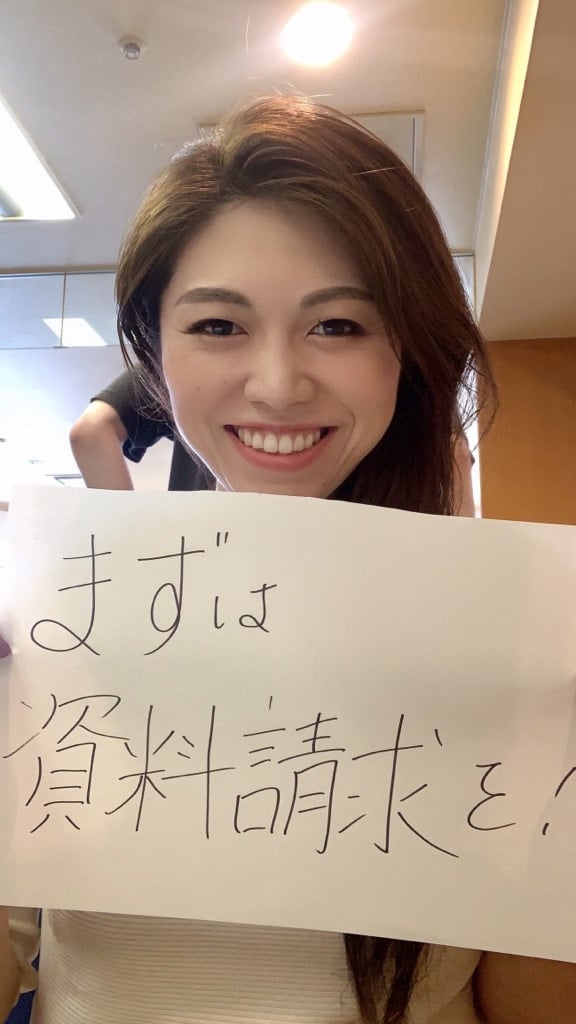 まずは
資料請求を!